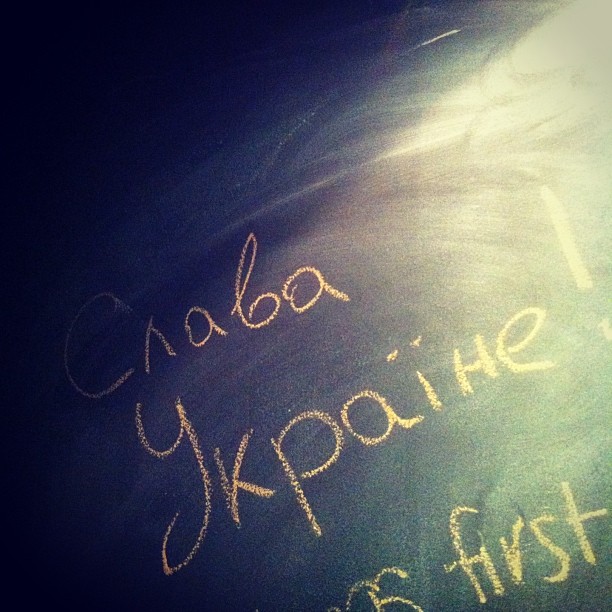 Слава
Україне!
first